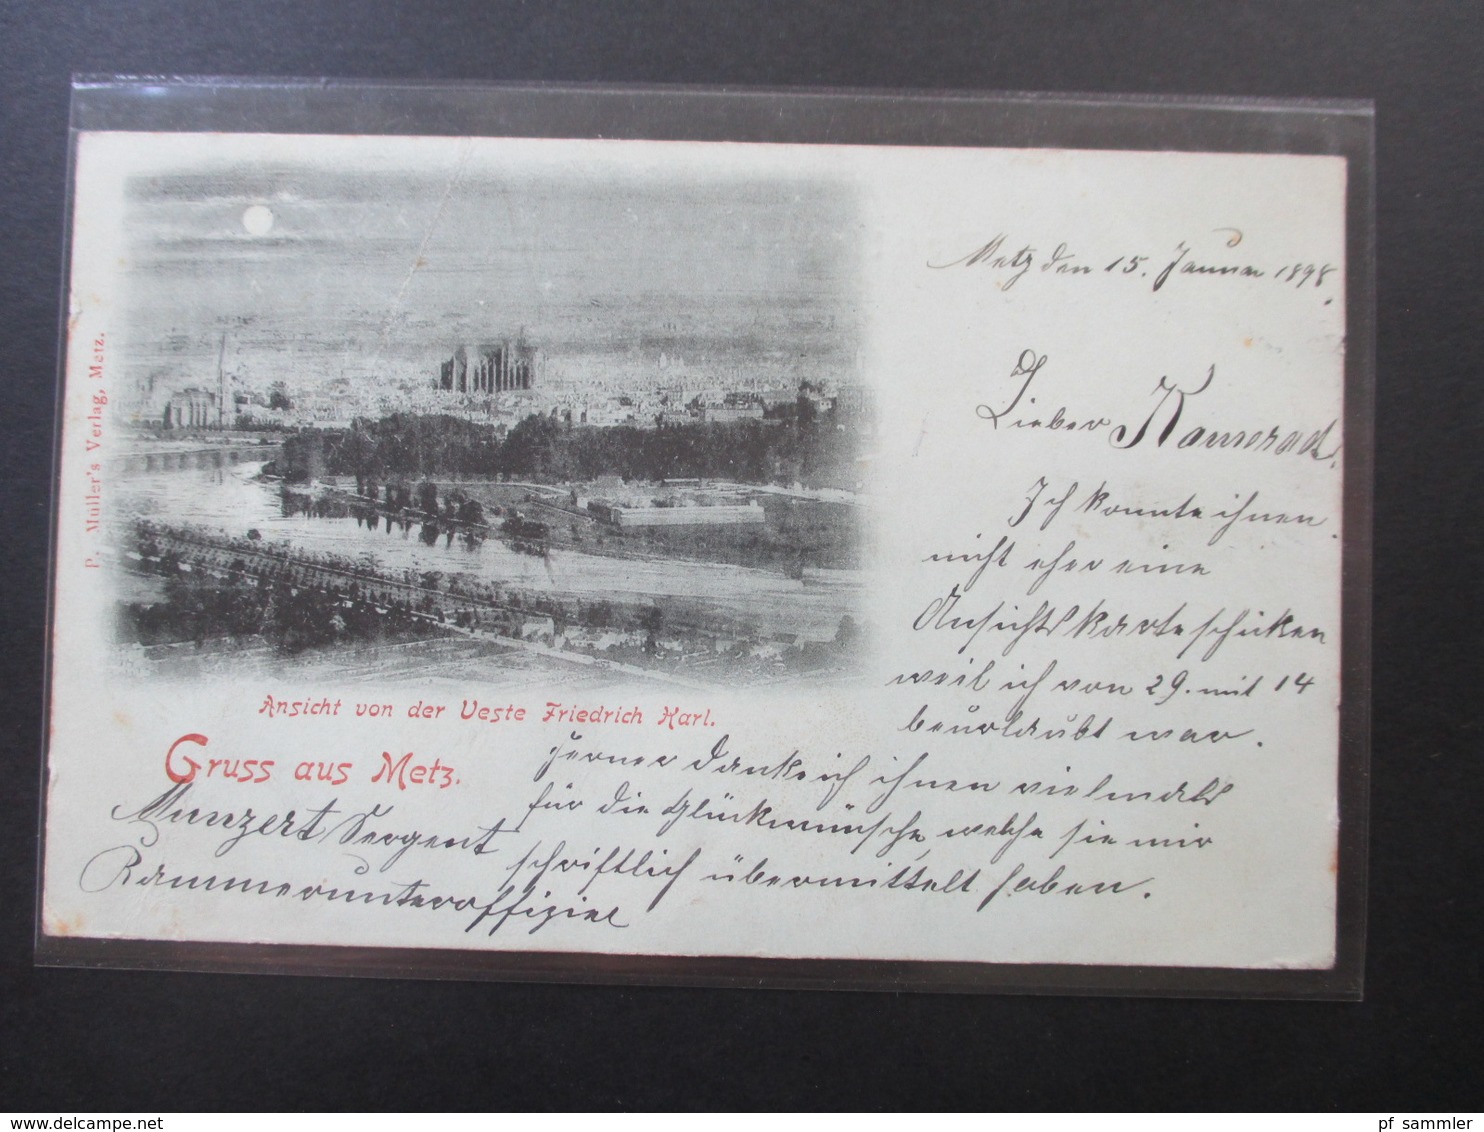 Metz den 15. Januar 1898.
Lieber Kamerad.
Ich konnte ihnen
nicht eher eine
Ansichtskarte schicken
weil ich von 29. mit 14
beurlaubt war.
Ferner danke ich ihnen vielmals
für die Glückwünsche, welche sie mir
schriftlich übermittelt haben.
Munzert Sergent
Kammerunteroffizier
P. Müller's Verlag, Metz.
Ansicht von der Veste Friedrich Karl.
Gruss aus Metz.
pf sammler
delcampe.net